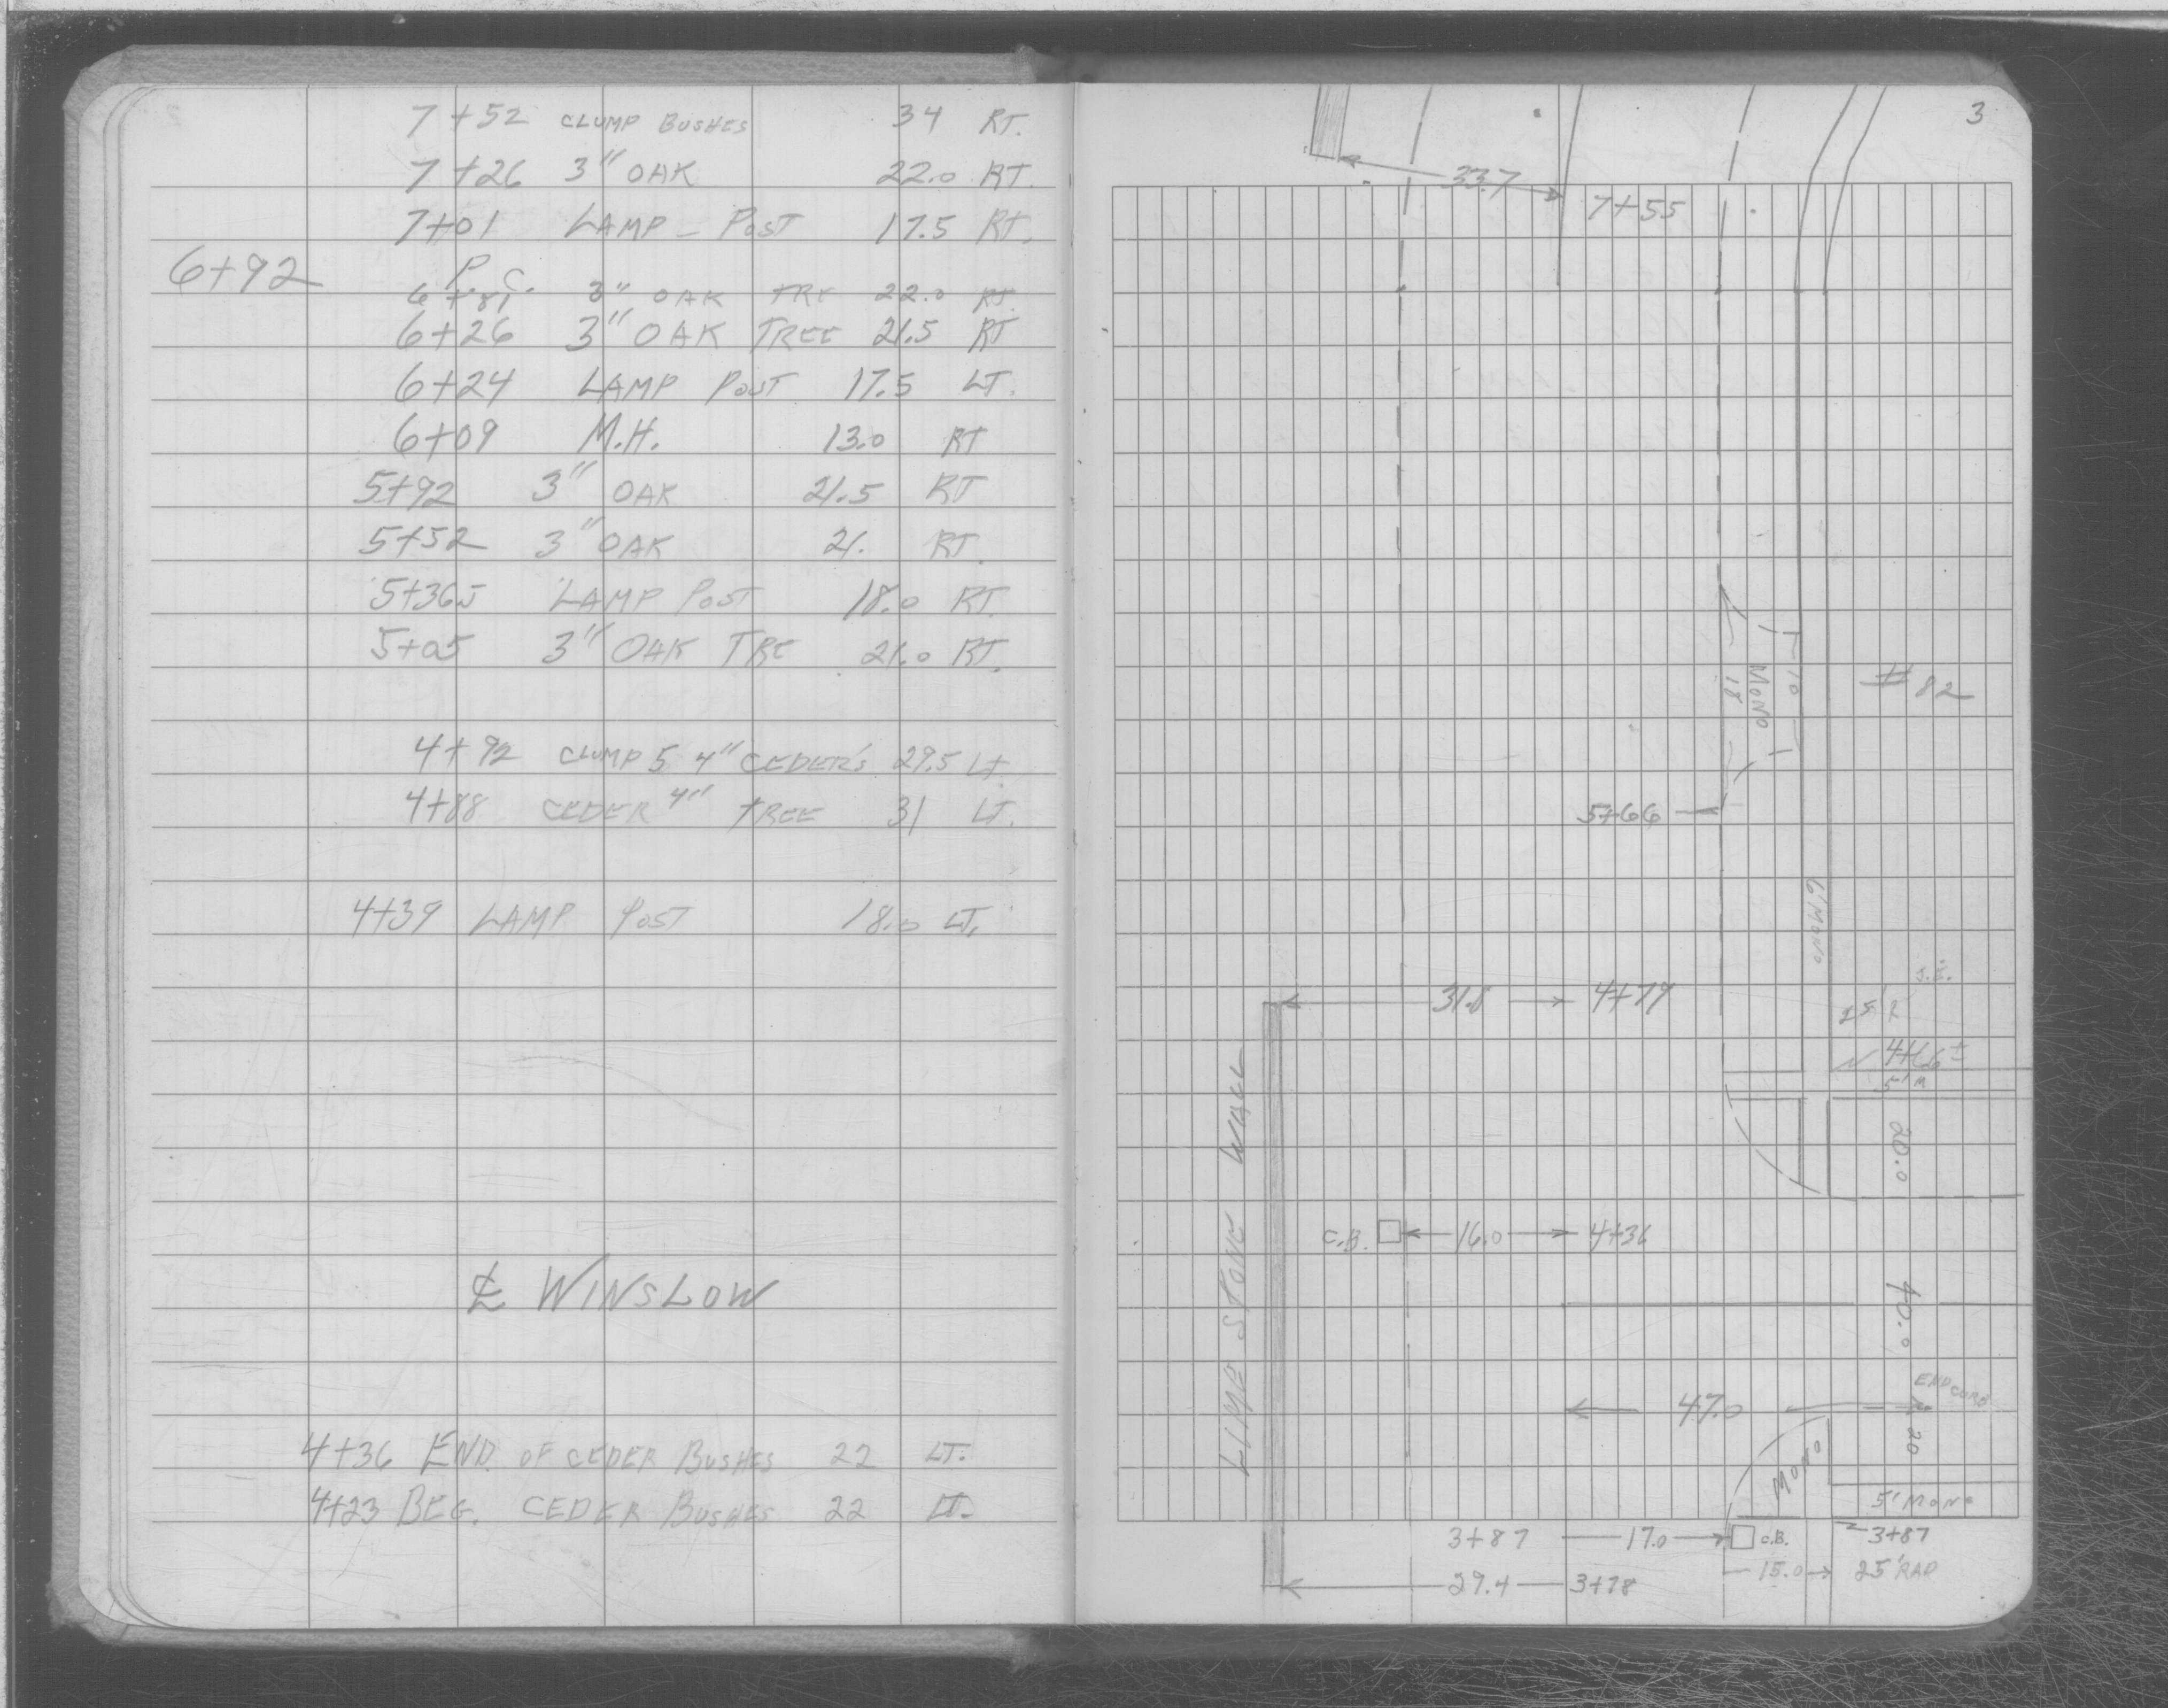 7+52 CLUMP BUSHES 34 RT.
7+26 3" OAK 22.0 RT.
7+01 LAMP - POST 17.5 RT.
6+92 P.C.
6+81 3" OAK TRE 22.0 RT.
6+26 3" OAK TREE 21.5 RT
6+24 LAMP POST 17.5 LT.
6+09 M.H. 13.0 RT
5+92 3" OAK 21.5 RT
5+52 3" OAK 21. RT.
5+365 LAMP POST 18.0 RT.
5+05 3" OAK TRE 21.0 RT.
4+92 CLUMP 5 4" CEDER'S 29.5 LT
4+88 CEDER 4" TREE 31 LT.
4+39 LAMP POST 18.0 LT.
℄ WINSLOW
4+36 END. OF CEDER BUSHES 22 LT.
4+23 BEG. CEDER BUSHES 22 LT.
3
33.7
7+55
10
MONO
18
#82
5+66
6' MONO
31.8 4+79
25 R
4+66±
5' M
20.0
LIME STONE WALL
C.B. 16.0 4+36
40.0
END CURB
47.0
20
MONO
5' MONO
3+87 17.0 C.B. 3+87
15.0 25' RAD
29.4 3+78